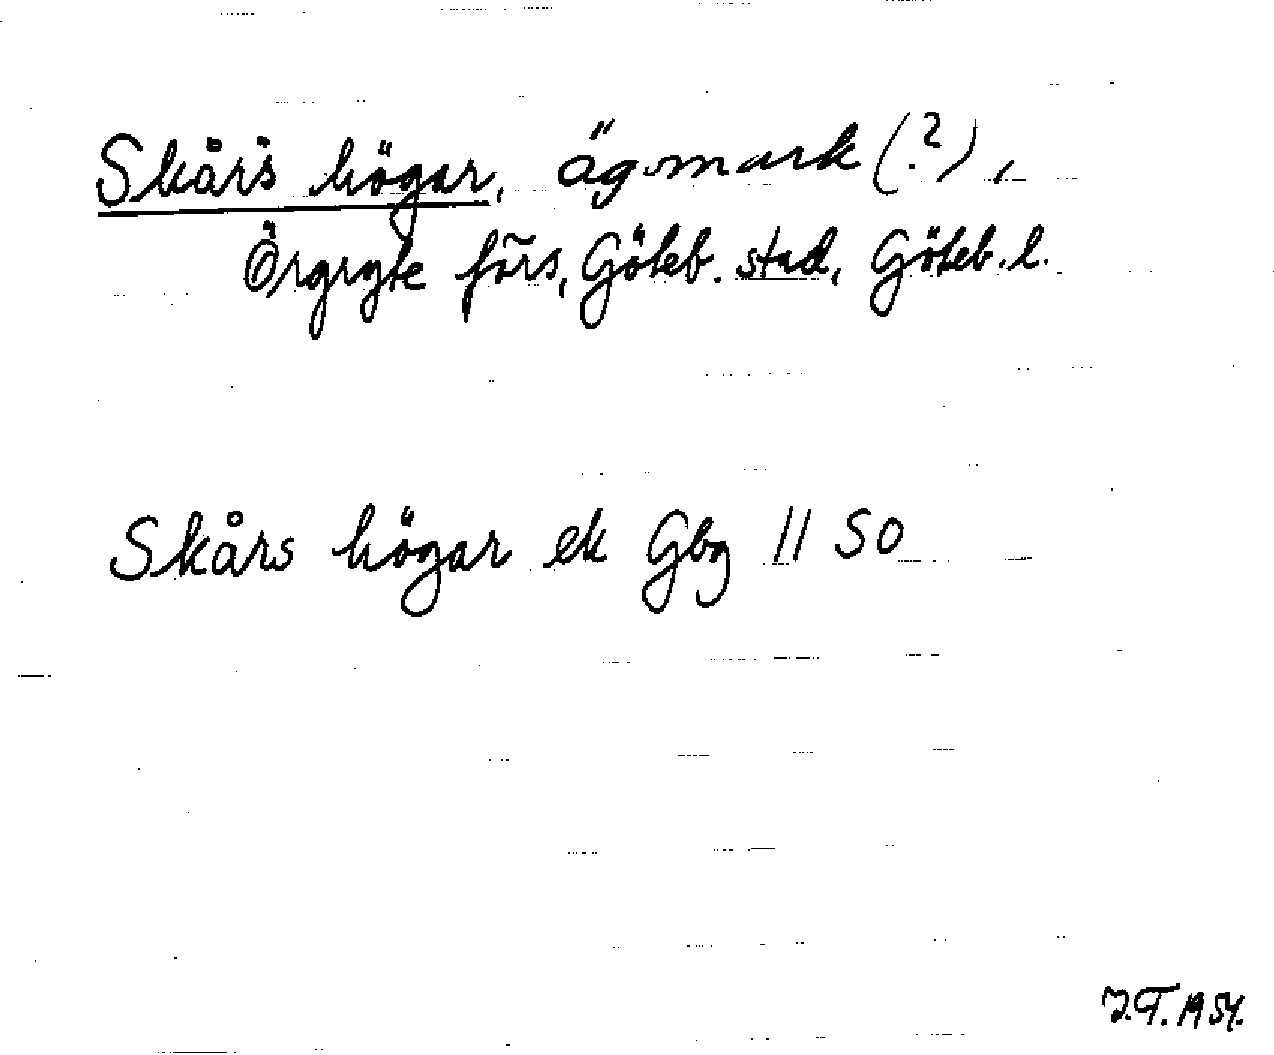 Skårs högar, ägomark (?),
Örgryte förs, Göteb. stad, Göteb. l.
Skårs högar ek Gbg 11 SO
J.T. 1954.